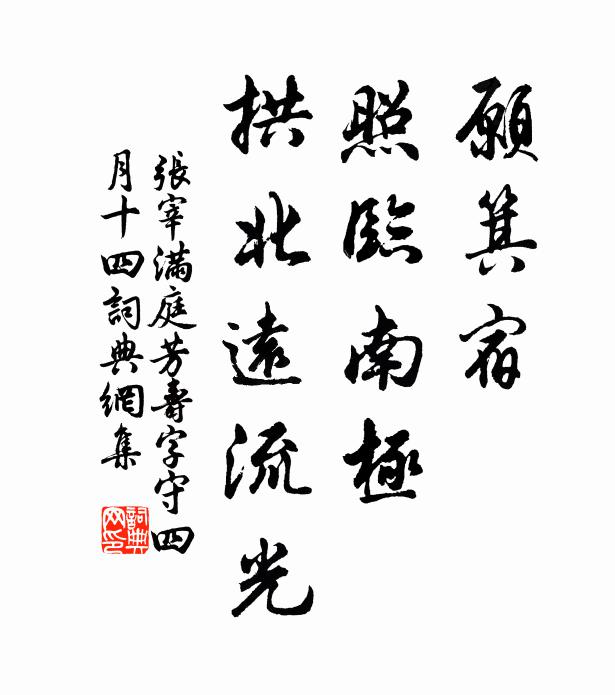 願箕宿
照臨南極
拱北遠流光
張宰滿庭芳壽字守四
月十四詞典網集
詞典
网印